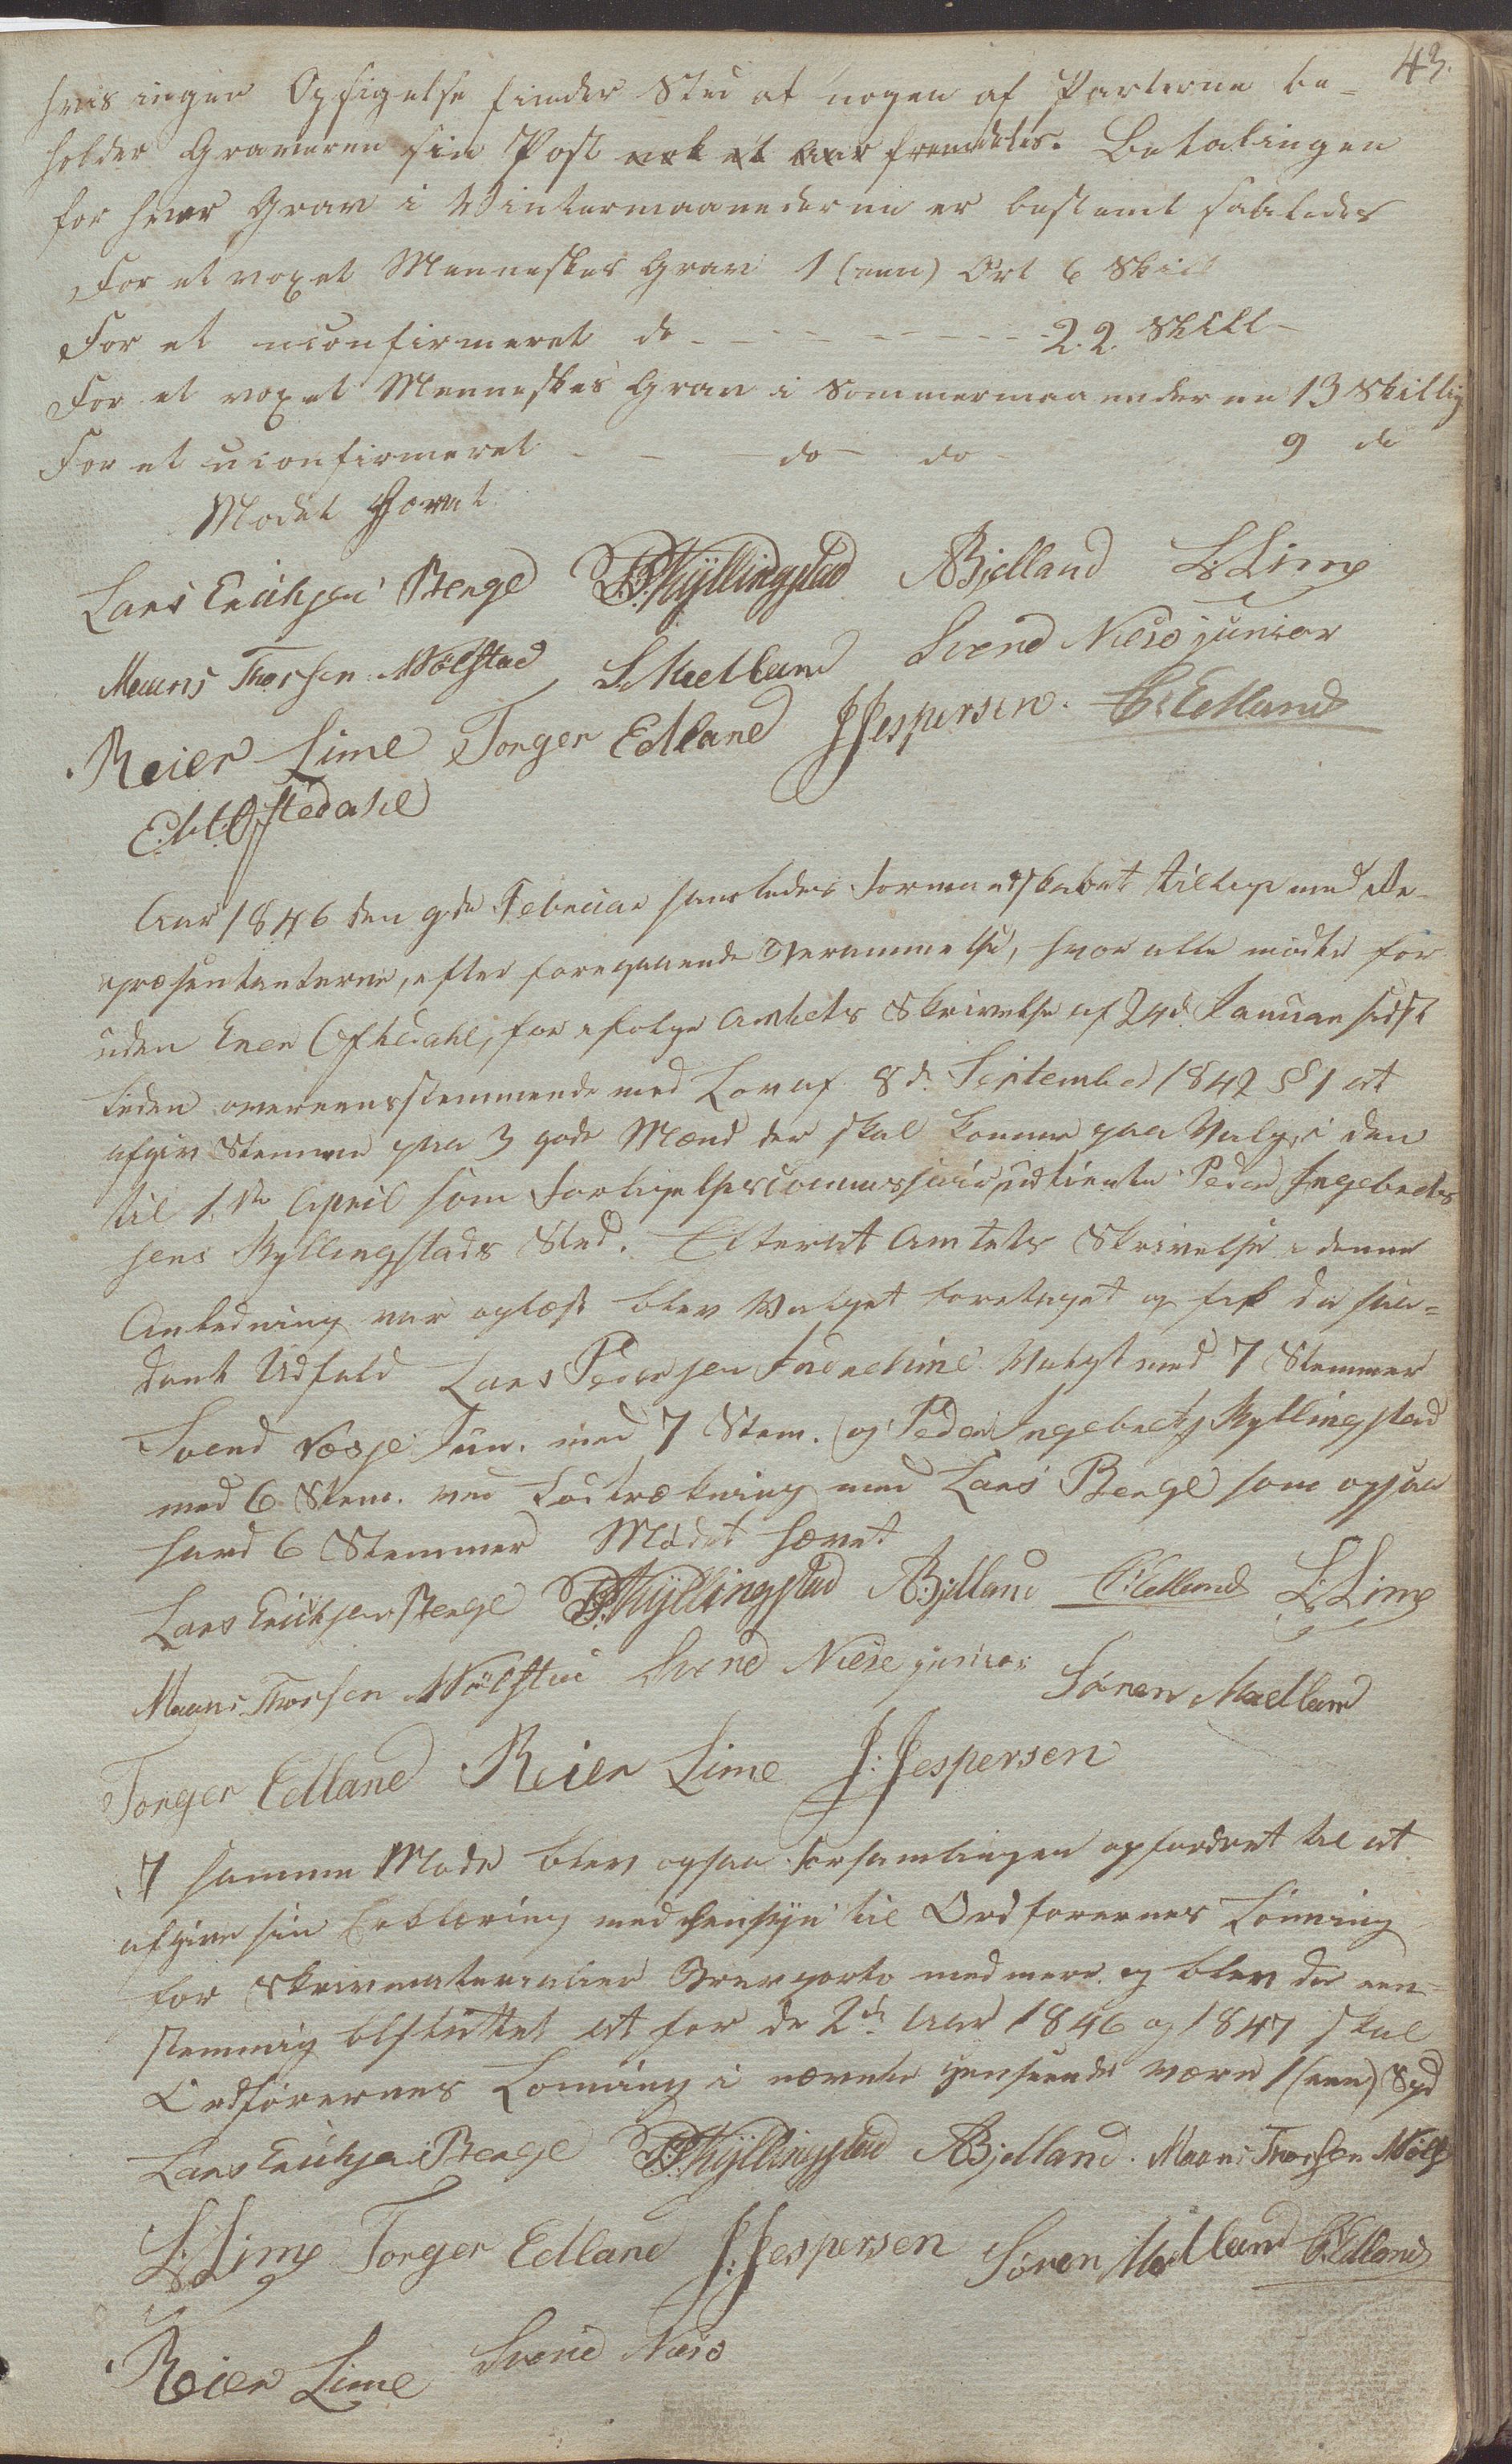 43.
hvis ingen Opsigelse finder Sted af nogen af Parterne be=
holder Graveren sin Post nok et Aar fremdeles. Betalingen
for hver Grav i Vintermaanederne er bestemt saaledes
For et voxet Menneskes Grav 1 (een) Ort 6 Skill
For et uconfirmeret do - - - - - - - 22 Skill
For et voxet Menneskes Grav i Sommermaanederne 13 Skillig
For et uconfirmeret - - do - do - 9 do
Mødet Hævet
Lars Erichsen Berge P.I.Kÿllingstad ABjelland L:Lime
Maans Thorsen Mölstad S.Maeland Svend Næse junior
Reier Lime Torger Edland JJespersen. C:Edland
E.A.Ofstedahl
Aar 1846 den 9de Februar samledes Formandskabet tillige med Re-
præsentanterne, efter foregaaende Berammelse, hvor alle mødte for
uden Ener Ofstedahl, for ifølge Amtets Skrivelse af 24d. Januar sidst
leden overeensstemmende med Lov af 8d. September 1842 § 1 at
afgive Stemmer paa 3 gode Mænd der skal komme paa Valg i den
til 1ste April som Forligelsescommissair udtrædende Peder Ingebrets
sens Kyllingstads Sted. Efterat Amtets Skrivelse i denne
Anledning var oplæst blev Valget foretaget og fik da saa=
dant Udfald Lars Pedersen Indrelime Valgt med 7 Stemmer
Svend Næsse Jun. med 7 Stem. og Peder Ingebrets Kyllingstad
med 6 Stem. ved Lodtrækning med Lars Berge som ogsaa
havd 6 Stemmer Mødet hævet
Lars Erichsen Berge P.I.Kÿllingstad ABjelland C:Edland L:Lime
Maans Thorsen Mölstad Svend Næse junior Sören Maeland
Torger Edland Reier Lime J:Jespersen
I samme Møde blev ogsaa Forsamlingen opfordret til at
afgive sin Erklæring med Hensyn til Ordførernes Lønning
for Skrivematerialier Brevporto med mere og blev da een-
stemmig besluttet at for de 2de Aar 1846 og 1847 skal
Ordførernes Lønning i nævnte henseende være 1 (een) Spd
Lars Erichsen Berge P.I.Kÿllingstad ABjelland. Maans Thorsen Mölst
L:Lime Torger Edland J:Jespersen Sören Maeland C:Edland
Reier Lime Svend Næse